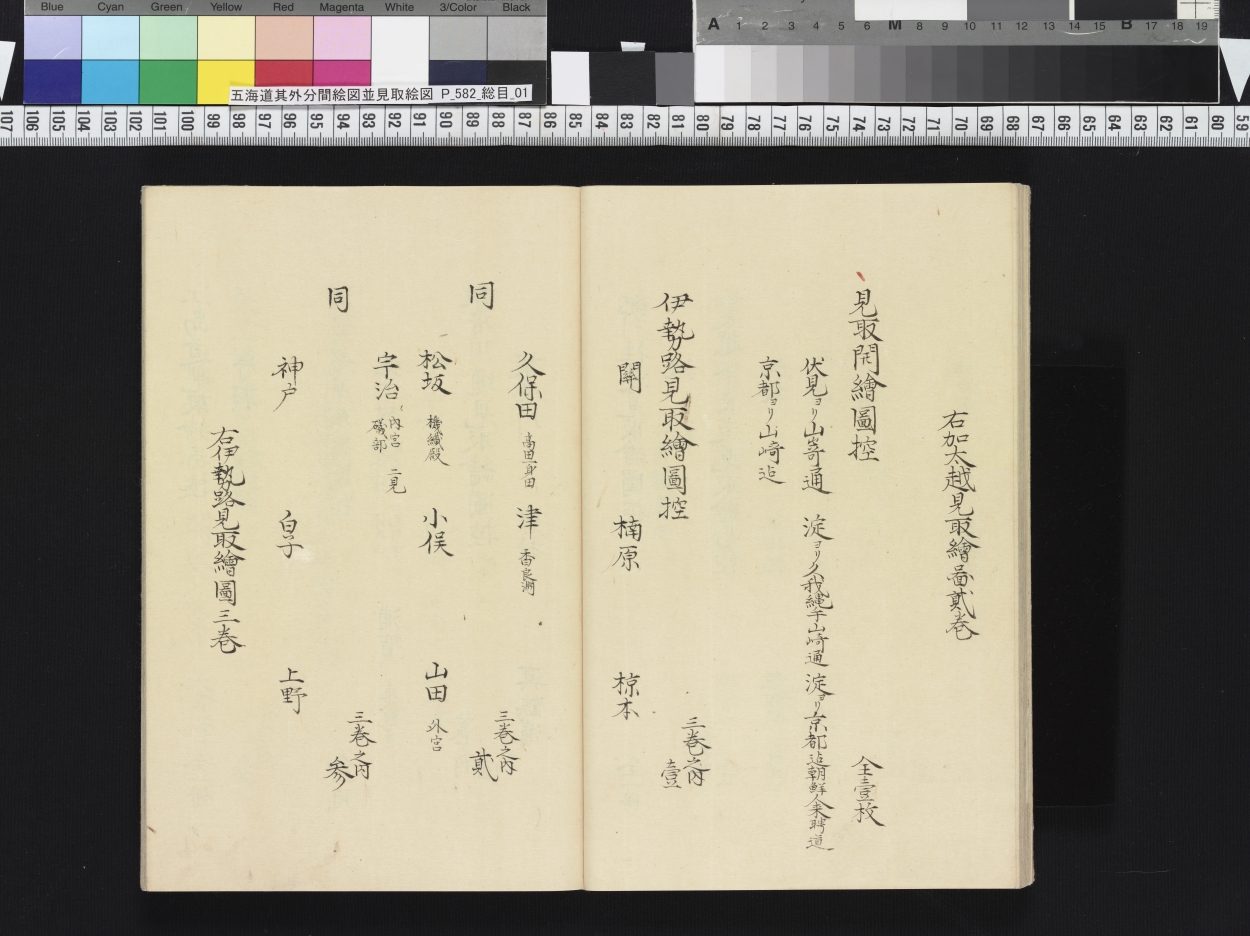 Blue Cyan Green Yellow Red Magenta White 3/Color Black
A 1 2 3 4 5 6 M 8 9 10 11 12 13 14 15 B 17 18 19
五海道其外分間絵図並見取絵図 P_582_総目_01
107 106 105 104 103 102 101 100 99 98 97 96 95 94 93 92 91 90 89 88 87 86 85 84 83 82 81 80 79 78 77 76 75 74 73 72 71 70 69 68 67 66 65 64 63 62 61 60 59
右加太越見取繪圖貳巻
見取開繪圖控 全壹枚
伏見ヨリ山嵜通 淀ヨリ久我縄手山崎通 淀ヨリ京都迠朝鮮人来聘道
京都ヨリ山崎迠
伊勢路見取繪圖控 三巻之内 壹
關 楠原 椋本
久保田 高田一身田 津 香良洲
同 三巻之内 貳
松坂 機織殿 小俣 山田 外宮
宇治 内宮 二見 礒部
同 三巻之内 参
神戸 白子 上野
右伊勢路見取繪圖三巻